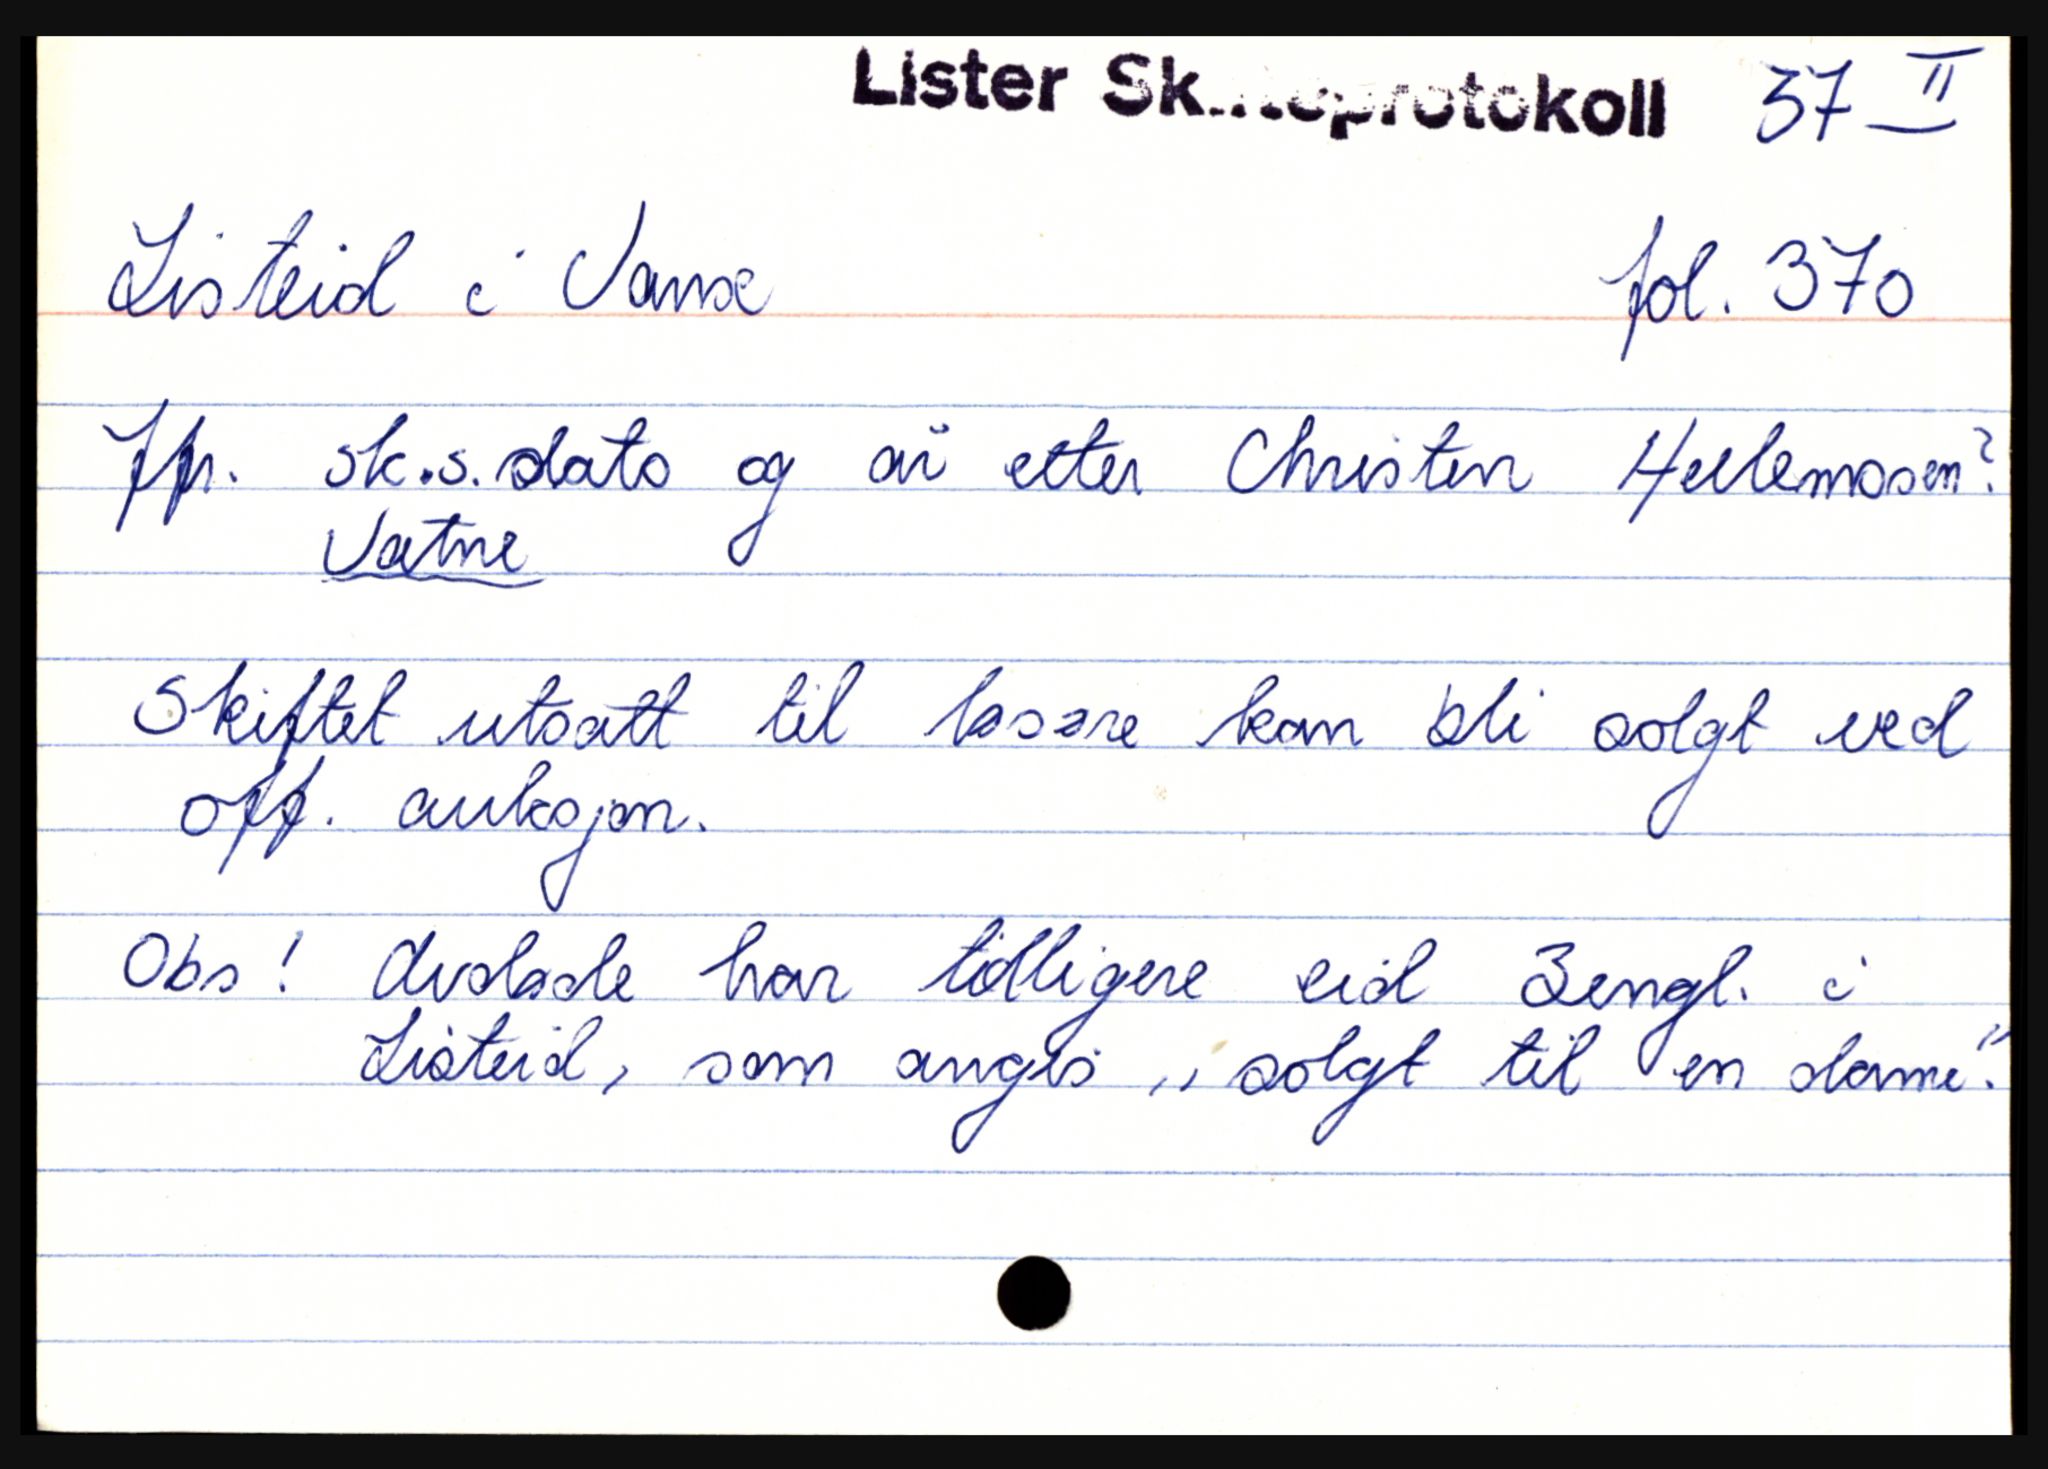 Lister Skifteprotokoll 37 II
Listeid i Vanse fol. 370
Jfr. sk.s. dato og år etter Christen Hellemosen?
Vatne
Skiftet utsatt til løsøre kan bli solgt ved
off. auksjon.
Obs! Avdøde har tidligere eid 3 engl. i
Listeid, som angis „solgt til en dame".